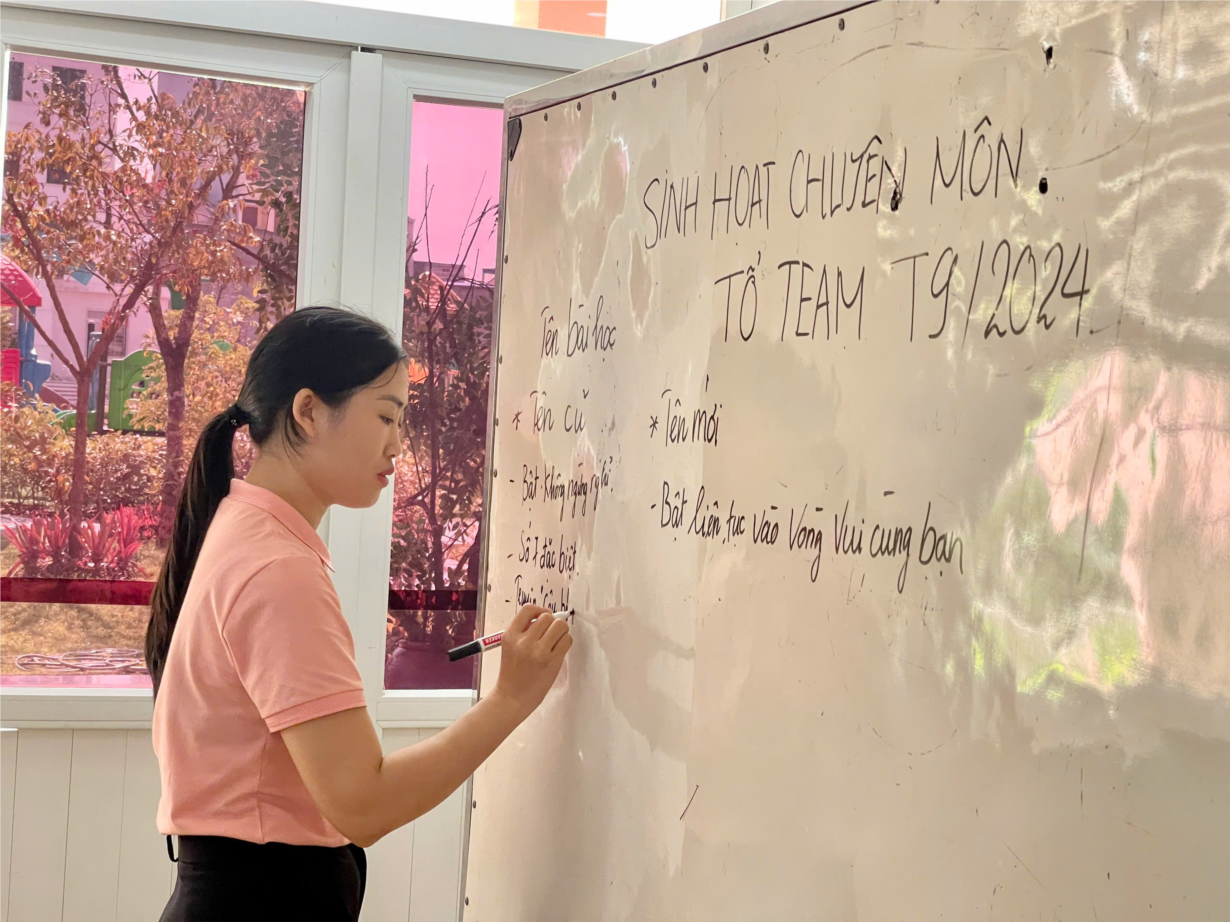 SINH HOẠT CHUYÊN MÔN.
TỔ TEAM T9/2024
Tên bài học
* Tên cũ
- Bật không ngừng nghỉ.
- Số 7 đặc biệt
- Truyện "Cây
* Tên mới
- Bật liên tục vào vòng vui cùng bạn